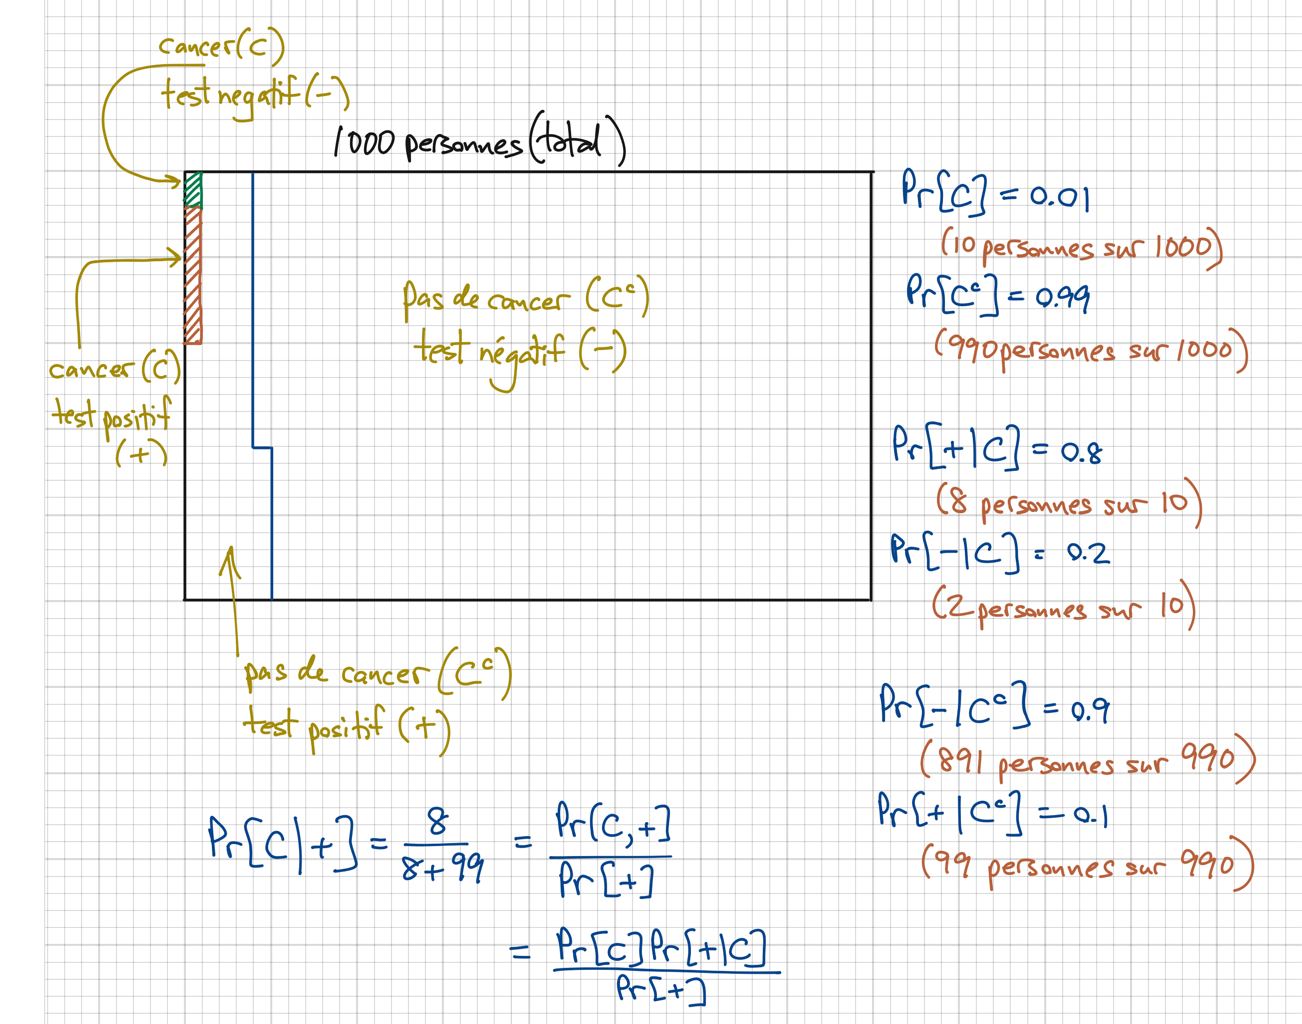 cancer (C)
test negatif (-)
1000 personnes (total)
pas de cancer (Cᶜ)
test négatif (-)
cancer (C)
test positif
(+)
pas de cancer (Cᶜ)
test positif (+)
Pr[C] = 0.01
(10 personnes sur 1000)
Pr[Cᶜ] = 0.99
(990 personnes sur 1000)
Pr[+|C] = 0.8
(8 personnes sur 10)
Pr[-|C] = 0.2
(2 personnes sur 10)
Pr[-|Cᶜ] = 0.9
(891 personnes sur 990)
Pr[+|Cᶜ] = 0.1
(99 personnes sur 990)
Pr[C|+] = 8 / (8+99) = Pr(C,+] / Pr[+]
= Pr[C] Pr[+|C] / Pr[+]